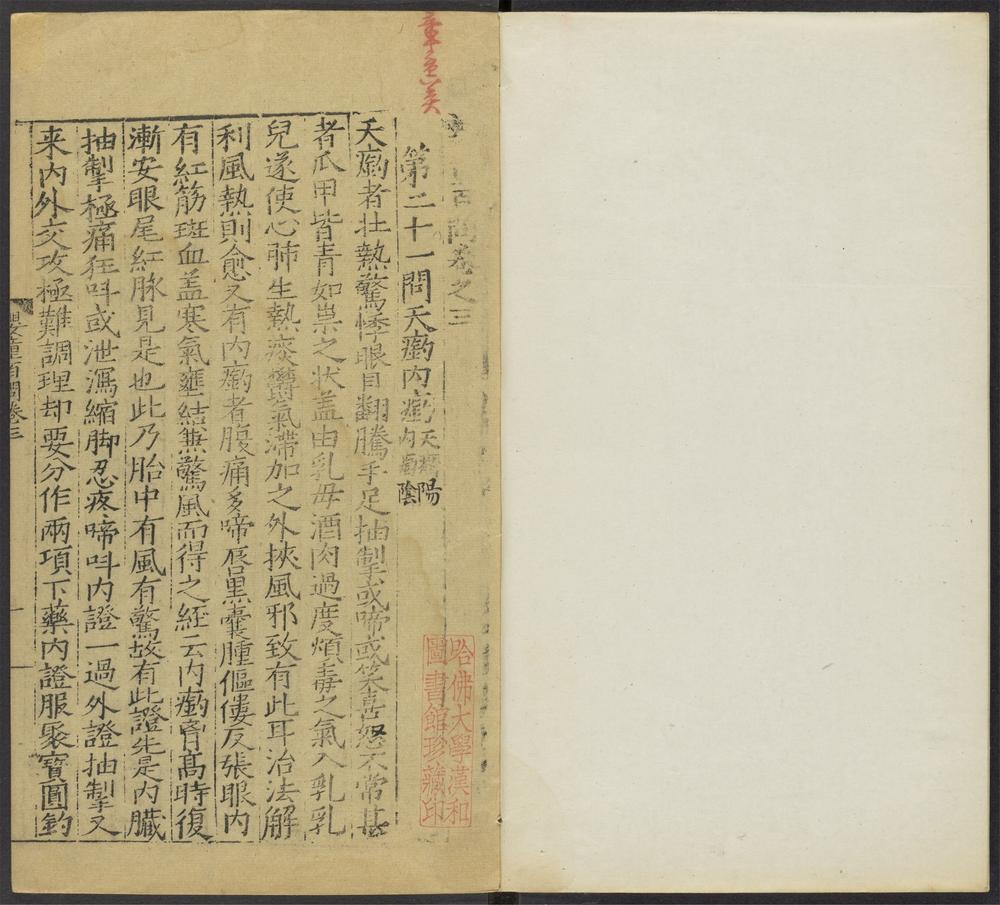 百問卷之三
第二十一問天瘹內瘹天瘹陽內瘹陰
天瘹者壯熱驚悸眼目翻騰手足抽掣或啼或笑喜怒不常甚
者爪甲皆青如祟之狀盖由乳母酒肉過度煩毒之氣入乳乳
兒遂使心肺生熱痰鬱氣滯加之外挾風邪致有此耳治法解
利風熱則愈又有內瘹者腹痛多啼唇黒囊腫傴僂反張眼內
有紅筋斑血盖寒氣壅結兼驚風而得之經云內瘹胷高時復
漸安眼尾紅脉見是也此乃胎中有風有驚故有此證先是內臟
抽掣極痛狂呌或泄瀉縮脚忍疼啼呌內證一過外證抽掣又
来內外交攻極難調理却要分作兩項下藥內證服聚寶圓鈞
嬰童百問卷三
一
哈佛大學漢和
圖書館珍藏印